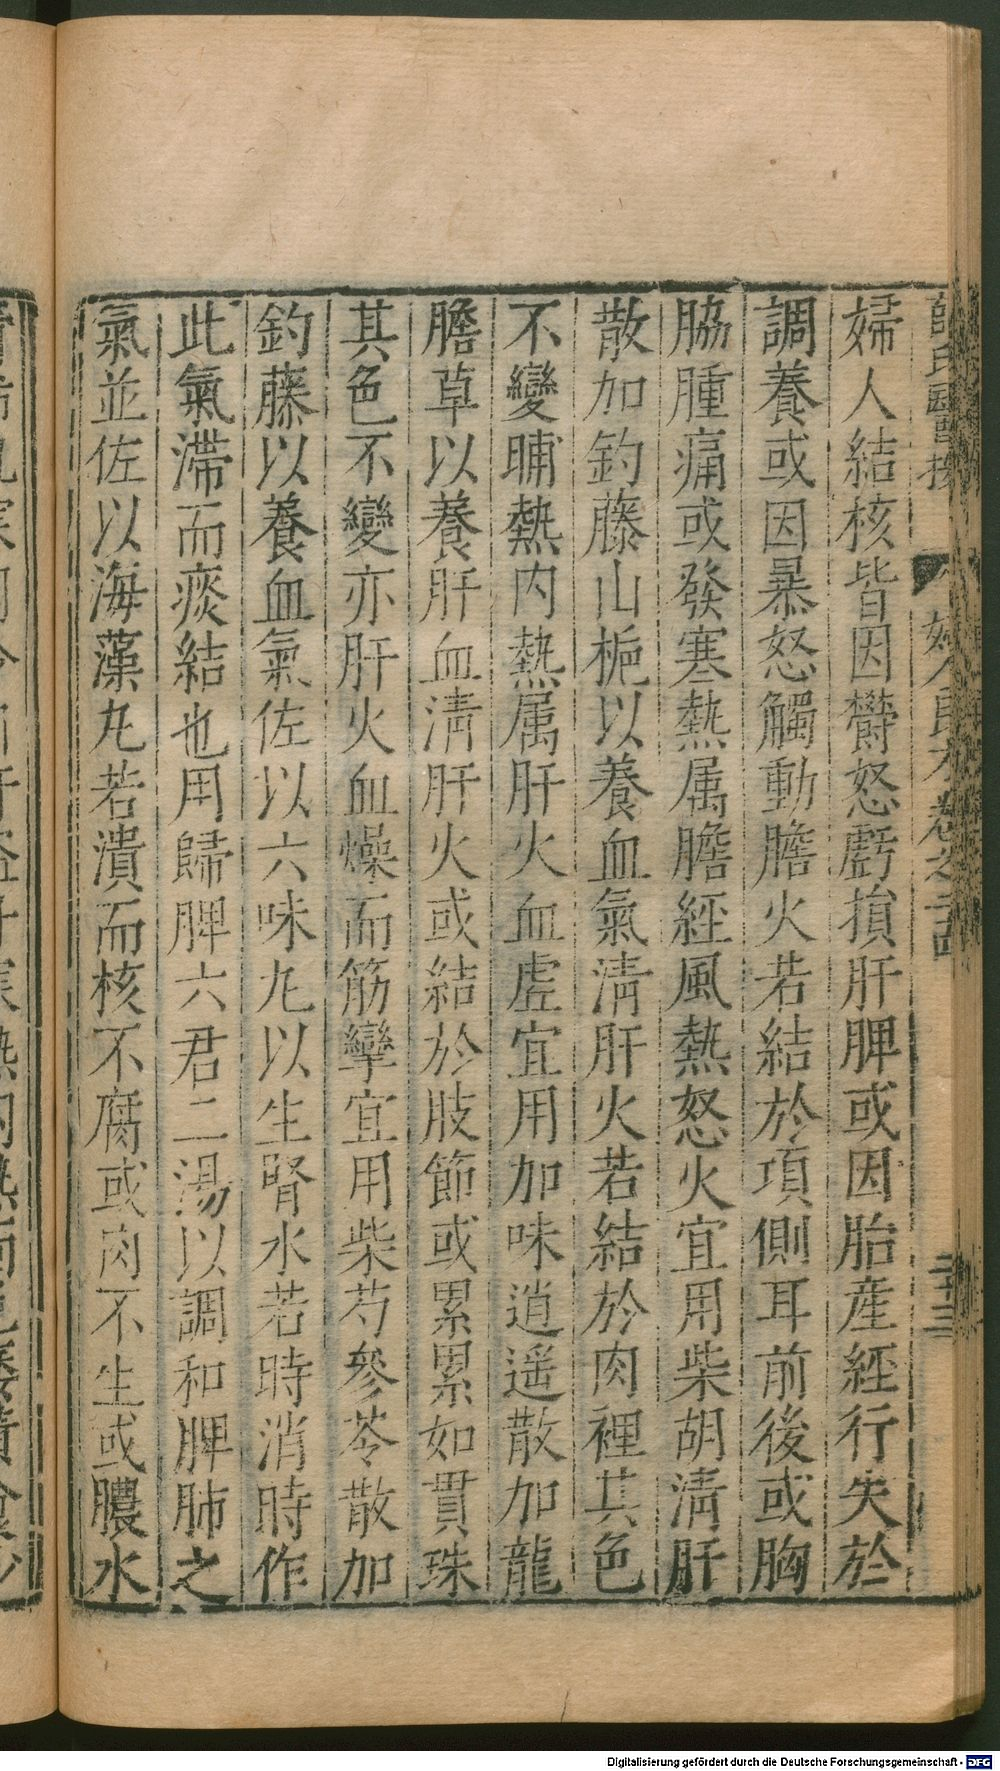 薛氏醫按 婦人良方卷之二十四 二十三
婦人結核皆因鬱怒虧損肝脾或因胎產經行失於
調養或因暴怒觸動膽火若結於項側耳前後或胸
脇腫痛或發寒熱属膽經風熱怒火宜用柴胡清肝
散加釣藤山梔以養血氣清肝火若結於肉裡其色
不變晡熱内熱属肝火血虛宜用加味逍遥散加龍
膽草以養肝血清肝火或結於肢節或累累如貫珠
其色不變亦肝火血燥而筋攣宜用柴芍參苓散加
釣藤以養血氣佐以六味尢以生腎水若時消時作
此氣滯而痰結也用歸脾六君二湯以調和脾肺之
氣並佐以海藻尢若潰而核不腐或肉不生或膿水
Digitalisierung gefördert durch die Deutsche Forschungsgemeinschaft - DFG